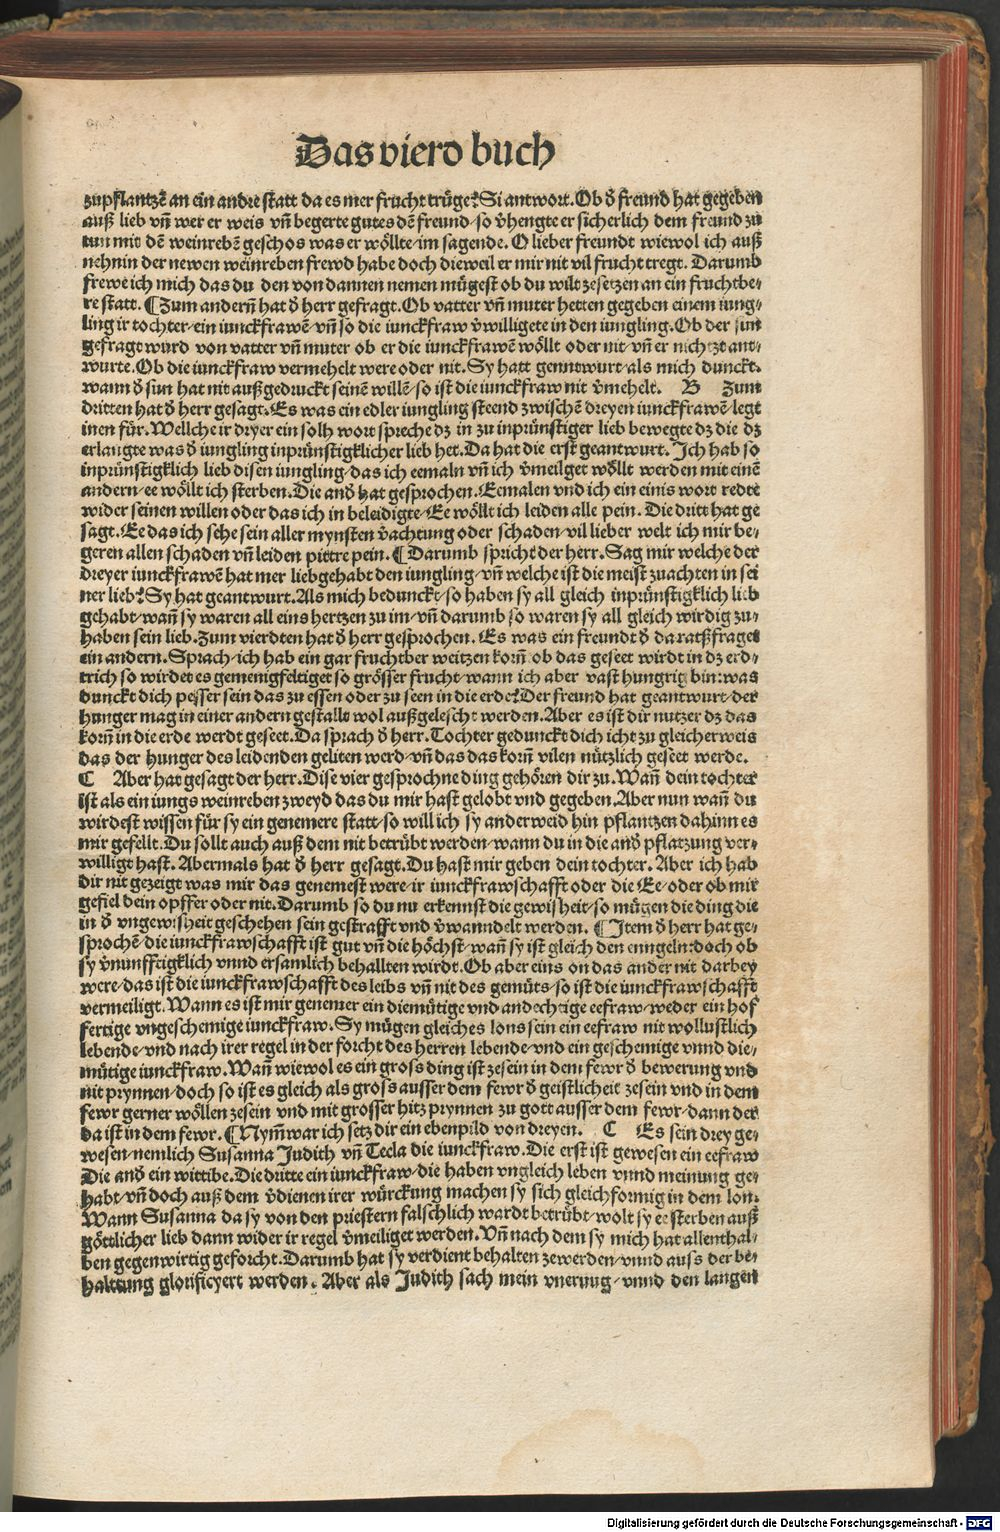 Das vierd buch
zupflantzē an ein andre statt da es mer frucht trüge? Si antwort. Ob d̕ freund hat gegeben
auß lieb vn̄ wer er weis vn̄ begerte gutes dē freund/so v̕hengte er sicherlich dem freund zu
tun mit dē weinrebē geschos was er wöllte/im sagende. O lieber freundt wiewol ich auß
nehnin der newen weinreben frewd habe doch dieweil er mir nit vil frucht tregt. Darumb
frewe ich mich das du den von dannen nemen mügest ob du wilt zesetzen an ein fruchtbe/
re statt. ¶Zum andern̄ hat d̕ herr gefragt. Ob vatter vn̄ muter hetten gegeben einem iung/
ling ir tochter/ein iunckfrawē/vn̄ so die iunckfraw v̕willigete in den iungling. Ob der iun
gefragt wurd von vatter vn̄ muter ob er die iunckfrawē wöllt oder nit/vn̄ er nichtzt ant/
wurte. Ob die iunckfraw vermehelt were oder nit. Sy hatt genntwurt/als mich dunckt.
wann d̕ sun hat nit außgedruckt seinē willē/so ist die iunckfraw nit v̕mehelt. B Zum
dritten hat d̕ herr gesagt. Es was ein edler iungling steend zwischē dreyen iunckfrawē/legt
inen für. Wellche ir dryer ein solh wort spreche dz in zu inprünstiger lieb bewegte dz die dz
erlangte was d̕ iungling inprünstigklicher lieb het. Da hat die erst geantwurt. Ich hab so
inprünstigklich lieb disen iungling/das ich eemaln vn̄ ich v̕meilget wöllt werden mit einē
andern/ee wöllt ich sterben. Die and̕ hat gesprochen. Eemalen vnd ich ein einis wort redte
wider seinen willen oder das ich in beleidigte/Ee wöllt ich leiden alle pein. Die dritt hat ge
sagt. Ee das ich sehe sein aller mynsten v̕achtung oder schaden/vil lieber welt ich mir be/
geren allen schaden vn̄ leiden pittre pein. ¶Darumb spricht der herr. Sag mir welche der
dreyer iunckfrawē hat mer liebgehabt den iungling/vn̄ welche ist die meist zuachten in sei
ner lieb? Sy hat geantwurt. Als mich bedunckt/so haben sy all gleich inprünstigklich lieb
gehabt/wan̄ sy waren all eins hertzen zu im/vn̄ darumb so waren sy all gleich wirdig zu/
haben sein lieb. Zum vierdten hat d̕ herr gesprochen. Es was ein freundt d̕ da ratßfraget
ein andern. Sprach/ich hab ein gar fruchtber weitzen korn̄ ob das geseet wirdt in dz erd/
trich so wirdet es gemenigfeltiget so grösser frucht/wann ich aber vast hungrig bin: was
dunckt dich pesser sein das zu essen oder zu seen in die erde? Der freund hat geantwurt/der
hunger mag in einer andern gestallt wol außgelescht werden. Aber es ist dir nutzer dz das
korn̄ in die erde werdt geseet. Da sprach d̕ herr. Tochter gedunckt dich icht zu gleicher weis
das der hunger des leidenden geliten werd/vn̄ das das korn̄ vilen nützlich geseet werde.
C Aber hat gesagt der herr. Dise vier gesprochne ding gehören dir zu. Wan̄ dein tochter
ist als ein iungs weinreben zweyd das du mir hast gelobt vnd gegeben. Aber nun wan̄ du
wirdest wissen für sy ein genemere statt/so will ich sy anderweid hin pflantzen dahinn es
mir gefellt. Du sollt auch auß dem nit betrübt werden/wann du in die and̕ pflatzung ver/
willigt hast. Abermals hat d̕ herr gesagt. Du hast mir geben dein tochter. Aber ich hab
dir nit gezeigt was mir das genemest were/ir iunckfrawschafft oder die Ee/oder ob mir
gefiel dein opffer oder nit. Darumb so du nu erkennst die gewisheit/so mügen die ding die
in d̕ vngewisheit geschehen sein gestrafft vnd v̕wanndelt werden. ¶Item d̕ herr hat ge/
sprochē/die iunckfrawschafft ist gut vn̄ die höchst/wan̄ sy ist gleich den enngeln: doch ob
sy v̕nunfftigklich vnnd ersamlich behallten wirdt. Ob aber eins on das ander nit darbey
were/das ist die iunckfrawschafft des leibs vn̄ nit des gemüts/so ist die iunckfrawschafft
vermeiligt. Wann es ist mir genemer ein diemütige vnd andechtige eefraw/weder ein hof
fertige vngeschemige iunckfraw. Sy mügen gleiches lons sein ein eefraw nit wollustlich
lebende/vnd nach irer regel in der forcht des herren lebende/vnd ein geschemige vnnd die/
mütige iunckfraw. Wan̄ wiewol es ein gross ding ist zesein in dem fewr d̕ bewerung vnd
nit prynnen/doch so ist es gleich als gross ausser dem fewr d̕ geistlicheit zesein vnd in dem
fewr gerner wöllen zesein vnd mit grosser hitz prynnen zu gott ausser dem fewr/dann der
da ist in dem fewr. ¶Nym̄war ich setz dir ein ebenpild von dreyen. C Es sein drey ge/
wesen/nemlich Susanna Judith vn̄ Tecla die iunckfraw. Die erst ist gewesen ein eefraw
Die and̕ ein wittibe. Die dritte ein iunckfraw/die haben vngleich leben vnnd meinung ge/
habt/vn̄ doch auß dem v̕dienen irer würckung machen sy sich gleichformig in dem lon.
Wann Susanna da sy von den priestern falschlich wardt betrübt/wolt sy ee sterben auß
göttlicher lieb dann wider ir regel v̕meiliget werden. Vn̄ nach dem sy mich hat allenthal/
ben gegenwirtig geforcht. Darumb hat sy verdient behalten zewerden/vnnd auss der be/
halltung glorificyert werden. Aber als Judith sach mein vnerung/vnnd den langen
Digitalisierung gefördert durch die Deutsche Forschungsgemeinschaft - DFG